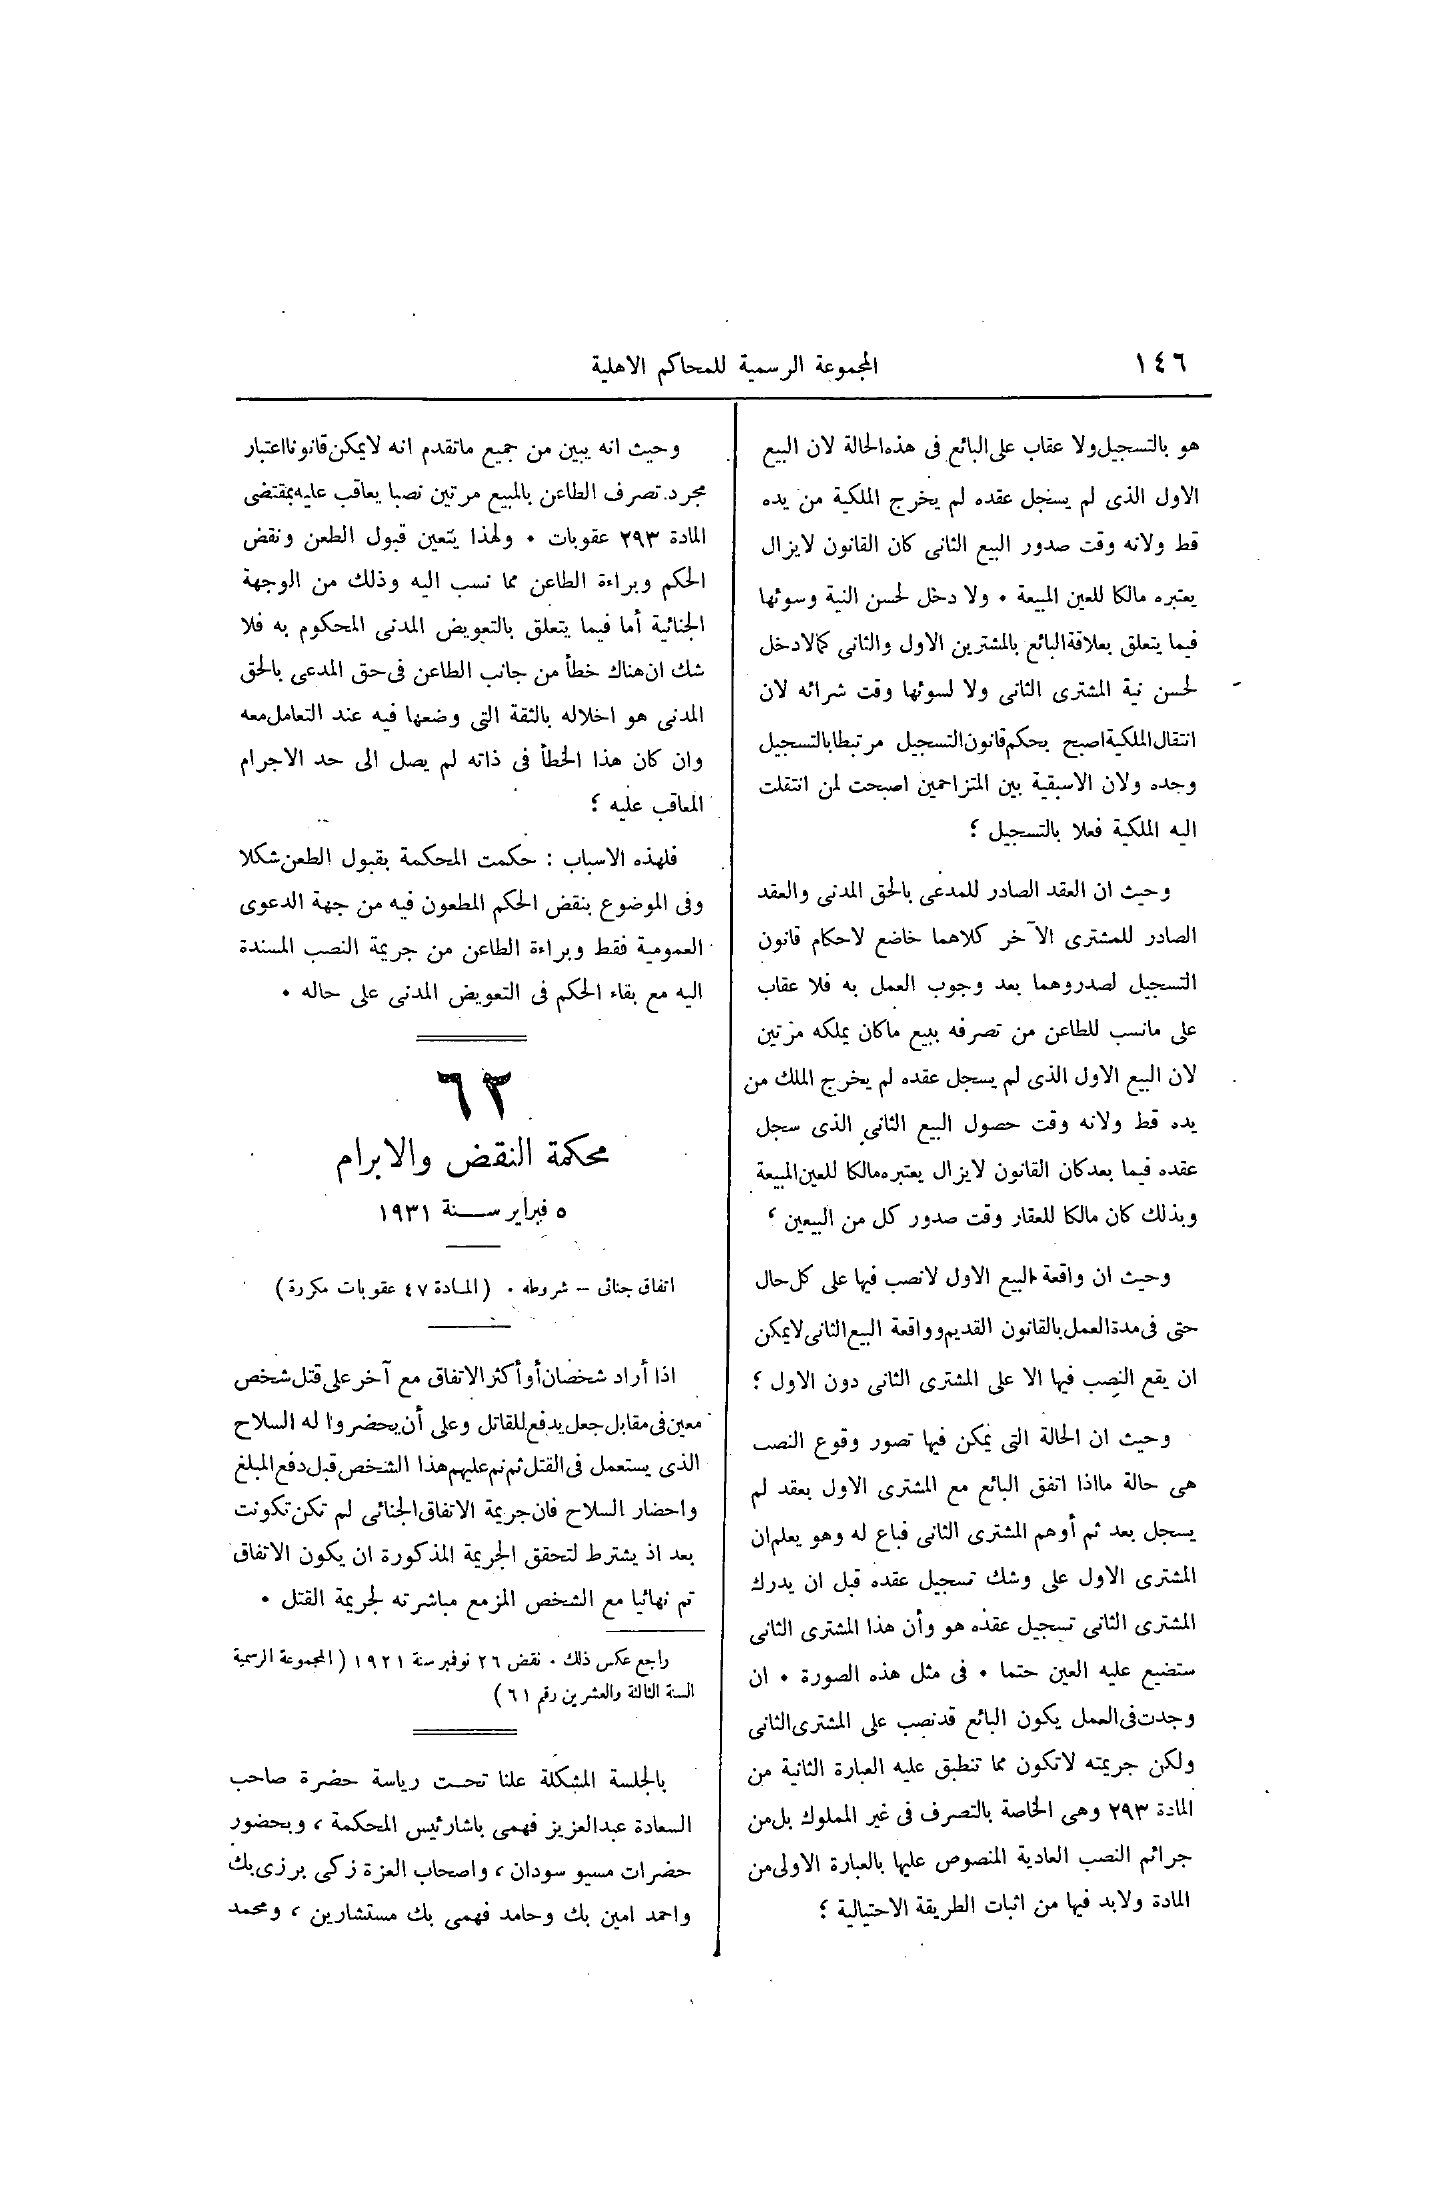 ١٤٦
المجموعة الرسمية للمحاكم الاهلية
هو بالتسجيل ولا عقاب على البائع فى هذه الحالة لان البيع
الاول الذى لم يسجل عقده لم يخرج الملكية من يده
قط ولانه وقت صدور البيع الثانى كان القانون لايزال
يعتبره مالكا للعين المبيعة ٠ ولا دخل لحسن النية وسوئها
فيما يتعلق بعلاقة البائع بالمشترين الاول والثانى كما لادخل
لحسن نية المشترى الثانى ولا لسوئها وقت شرائه لان
انتقال الملكية اصبح بحكم قانون التسجيل مرتبطا بالتسجيل
وحده ولان الاسبقية بين المتزاحمين اصبحت لمن انتقلت
اليه الملكية فعلا بالتسجيل ؛
وحيث ان العقد الصادر للمدعى بالحق المدنى والعقد
الصادر للمشترى الآخر كلاهما خاضع لاحكام قانون
التسجيل لصدروهما بعد وجوب العمل به فلا عقاب
على مانسب للطاعن من تصرفه ببيع ماكان يملكه مرتين
لان البيع الاول الذى لم يسجل عقده لم يخرج الملك من
يده قط ولانه وقت حصول البيع الثانى الذى سجل
عقده فيما بعد كان القانون لايزال يعتبره مالكا للعين المبيعة
وبذلك كان مالكا للعقار وقت صدور كل من البيعين ،
وحيث ان واقعة البيع الاول لانصب فيها على كل حال
حتى فى مدة العمل بالقانون القديم وواقعة البيع الثانى لايمكن
ان يقع النصب فيها الا على المشترى الثانى دون الاول ؛
وحيث ان الحالة التى يمكن فيها تصور وقوع النصب
هى حالة مااذا اتفق البائع مع المشترى الاول بعقد لم
يسجل بعد ثم أوهم المشترى الثانى فباع له وهو يعلم ان
المشترى الاول على وشك تسجيل عقده قبل ان يدرك
المشترى الثانى تسجيل عقده هو وأن هذا المشترى الثانى
ستضيع عليه العين حتما ٠ فى مثل هذه الصورة ٠ ان
وجدت فى العمل يكون البائع قد نصب على المشترى الثانى
ولكن جريمته لاتكون مما تنطبق عليه العبارة الثانية من
المادة ٢٩٣ وهى الخاصة بالتصرف فى غير المملوك بل من
جرائم النصب العادية المنصوص عليها بالعبارة الاولى من
المادة ولابد فيها من اثبات الطريقة الاحتيالية ؛
وحيث انه يبين من جميع ماتقدم انه لايمكن قانونا اعتبار
مجرد تصرف الطاعن بالمبيع مرتين نصبا يعاقب عليه بمقتضى
المادة ٢٩٣ عقوبات ٠ ولهذا يتعين قبول الطعن ونقض
الحكم وبراءة الطاعن مما نسب اليه وذلك من الوجهة
الجنائية أما فيما يتعلق بالتعويض المدنى المحكوم به فلا
شك ان هناك خطأ من جانب الطاعن فى حق المدعى بالحق
المدنى هو اخلاله بالثقة التى وضعها فيه عند التعامل معه
وان كان هذا الخطأ فى ذاته لم يصل الى حد الاجرام
المعاقب عليه ؛
فلهذه الاسباب : حكمت المحكمة بقبول الطعن شكلا
وفى الموضوع بنقض الحكم المطعون فيه من جهة الدعوى
العمومية فقط وبراءة الطاعن من جريمة النصب المسندة
اليه مع بقاء الحكم فى التعويض المدنى على حاله ٠
٦٣
محكمة النقض والابرام
٥ فبراير سنة ١٩٣١
اتفاق جنائى – شروطه ٠ (المادة ٤٧ عقوبات مكررة)
اذا أراد شخصان أو أكثر الاتفاق مع آخر على قتل شخص
معين فى مقابل جعل يدفع للقاتل وعلى أن يحضروا له السلاح
الذى يستعمل فى القتل ثم نم عليهم هذا الشخص قبل دفع المبلغ
واحضار السلاح فان جريمة الاتفاق الجنائى لم تكن تكونت
بعد اذ يشترط لتحقق الجريمة المذكورة ان يكون الاتفاق
تم نهائيا مع الشخص المزمع مباشرته لجريمة القتل ٠
راجع عكس ذلك ٠ نقض ٢٦ نوفمبر سنة ١٩٢١ (المجموعة الرسمية
السنة الثالثة والعشرين رقم ٦١)
بالجلسة المشكلة علنا تحت رياسة حضرة صاحب
السعادة عبد العزيز فهمى باشا رئيس المحكمة ، وبحضور
حضرات مسيو سودان ، واصحاب العزة زكى برزى بك
واحمد امين بك وحامد فهمى بك مستشارين ، ومحمد